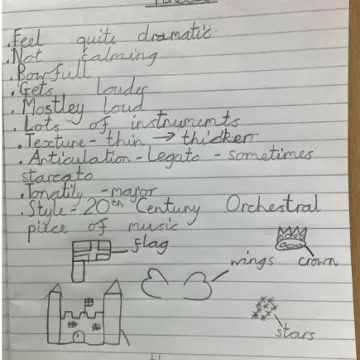 .Feel quite dramatic
.Not calming
.Bowfull
.Gets louder
.Mostley loud
.Lots of instruments
.Texture - thin → thicker
.Articulation - Legato - sometimes
starcato
.Tonatily - major
.Style - 20th Century Orchestral
piece of music
flag
wings
crown
stars